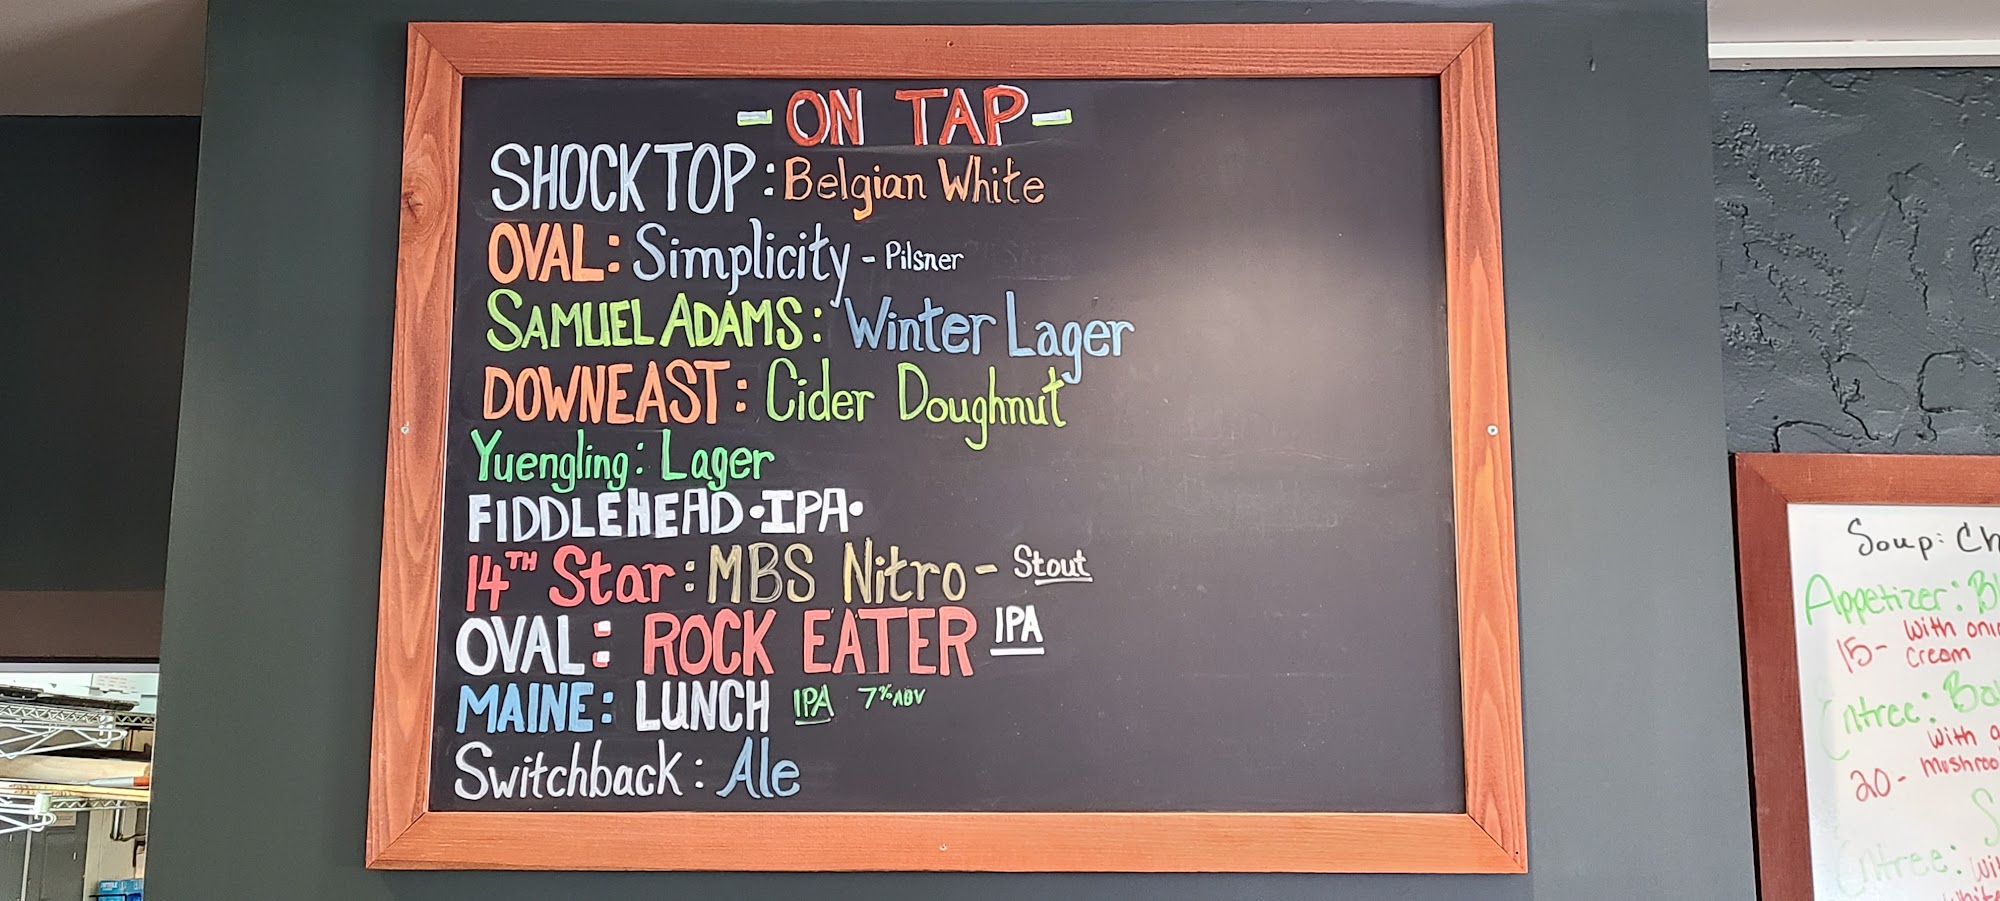 - ON TAP -
SHOCKTOP: Belgian White
OVAL: Simplicity - Pilsner
SAMUEL ADAMS: Winter Lager
DOWNEAST: Cider Doughnut
Yuengling: Lager
FIDDLEHEAD • IPA •
14TH Star: MBS Nitro - Stout
OVAL: ROCK EATER IPA
MAINE: LUNCH IPA 7% ABV
Switchback: Ale
Soup: Ch
Appetizer: Bl
15- with oni
cream
Entree: Ba
with g
20- mushroo
Entree:
Wit
white